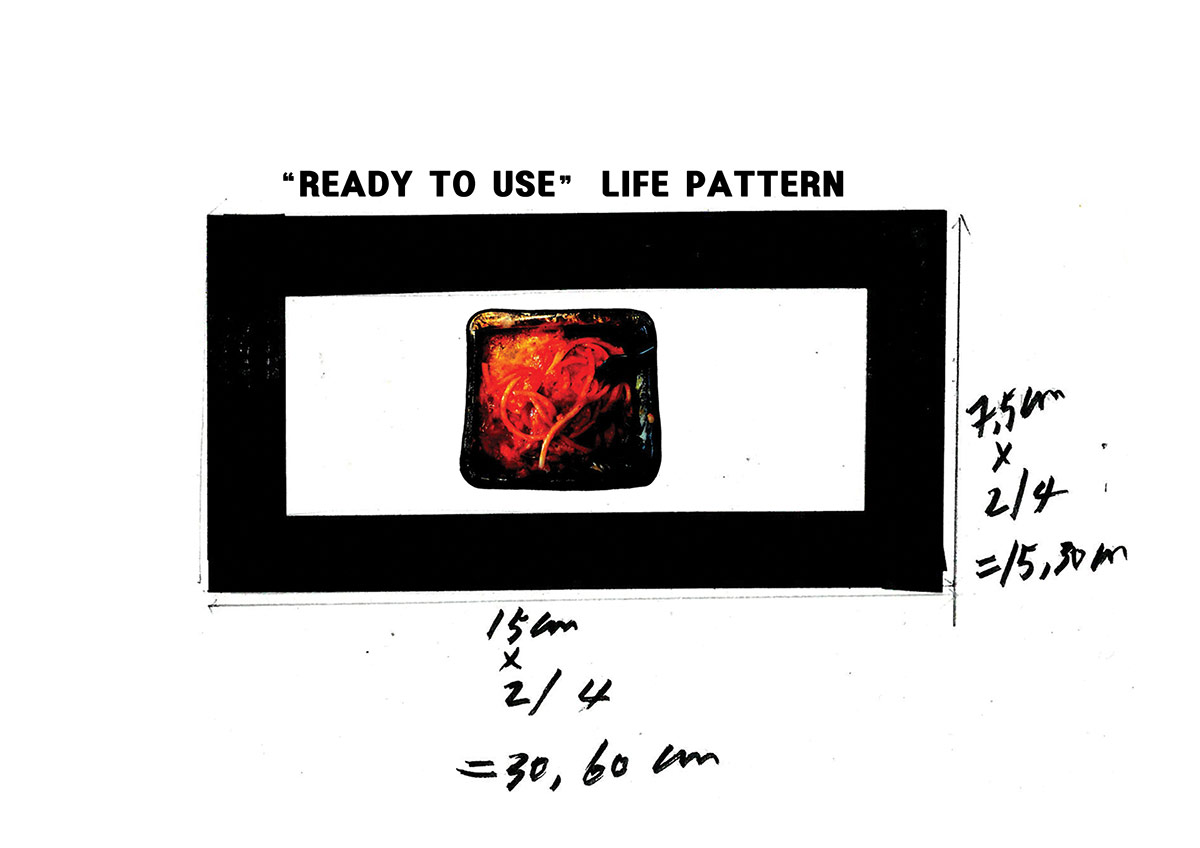 “READY TO USE” LIFE PATTERN
7,5cm
x
2/4
=15,30cm
15cm
x
2/4
=30, 60 cm